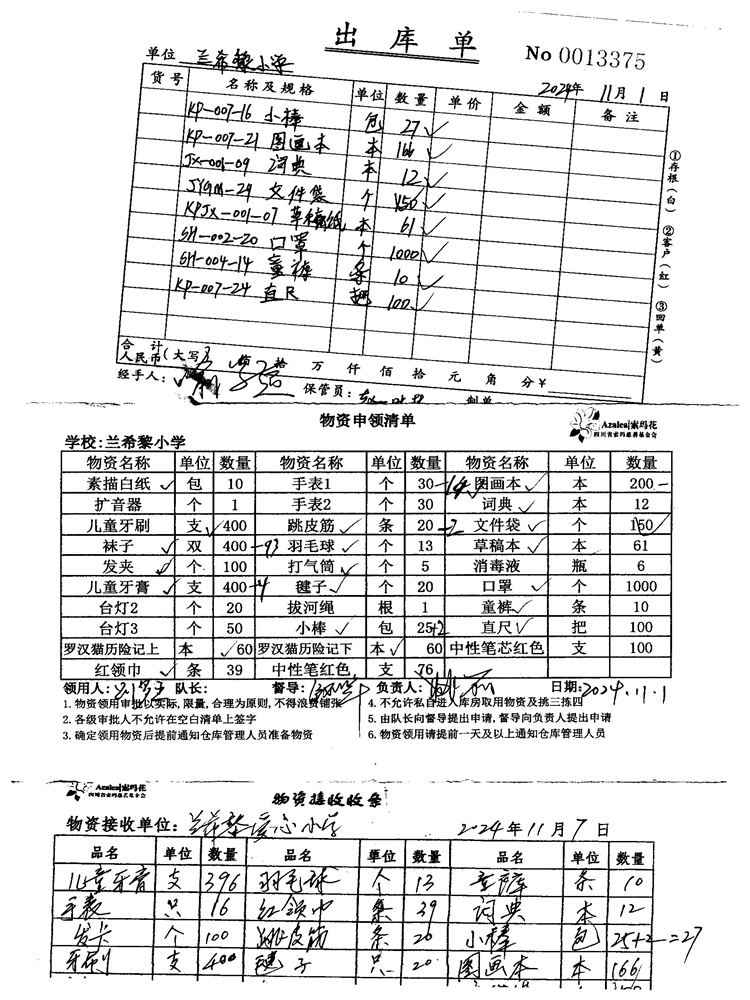 出库单
No 0013375
单位 兰希黎小学
2024年 11月 1日
货号 名称及规格 单位 数量 单价 金额 备注
KP-007-16 小棒 包 27 ✓
KP-007-21 图画本 本 166 ✓
JX-001-09 词典 本 12 ✓
文件袋 个 150 ✓
KPJX-001-07 草稿纸 本 61 ✓
SH-002-20 口罩 个 1000 ✓
SH-004-14 童裤 条 10 ✓
KP-007-24 直尺 把 100 ✓
①存根(白) ②客户(红) ③回单(黄)
合计
人民币(大写) 佰 拾 万 仟 佰 拾 元 角 分¥
经手人: 保管员: 制单
物资申领清单
Azalea|索玛花
四川省索玛慈善基金会
学校:兰希黎小学
物资名称 单位 数量 物资名称 单位 数量 物资名称 单位 数量
素描白纸 ✓ 包 10 手表1 个 30 -14 图画本 ✓ 本 200 -
扩音器 个 1 手表2 个 30 词典 ✓ 本 12
儿童牙刷 支 ✓ 400 跳皮筋 ✓ 条 20 -2 文件袋 ✓ 个 150 ✓
袜子 ✓ 双 400 -93 羽毛球 ✓ 个 13 草稿本 ✓ 本 61
发夹 ✓ 个 100 打气筒 ✓ 个 5 消毒液 瓶 6
儿童牙膏 ✓ 支 400 -4 毽子 ✓ 个 20 口罩 ✓ 个 1000
台灯2 个 20 拔河绳 根 1 童裤 ✓ 条 10
台灯3 个 50 小棒 ✓ 包 25+2 直尺 ✓ 把 100
罗汉猫历险记上 本 ✓ 60 罗汉猫历险记下 本 ✓ 60 中性笔芯红色 支 100
红领巾 ✓ 条 39 中性笔红色 支 76
领用人: 队长: 督导: 负责人: 日期:2024.11.1
1.物资领用审批以实际,限量,合理为原则,不得浪费铺张
4.不允许私自进入库房取用物资及挑三拣四
2.各级审批人不允许在空白清单上签字
5.由队长向督导提出申请,督导向负责人提出申请
3.确定领用物资后提前通知仓库管理人员准备物资
6.物资领用请提前一天及以上通知仓库管理人员
Azalea|索玛花
四川省索玛慈善基金会
物资接收收条
物资接收单位: 兰希黎爱心小学
2024年11月7日
品名 单位 数量 品名 单位 数量 品名 单位 数量
儿童牙膏 支 396 羽毛球 个 13 童裤 条 10
手表 只 16 红领巾 条 39 词典 本 12
发卡 个 100 跳皮筋 条 20 小棒 包 25+2=27
牙刷 支 400 毽子 只 20 图画本 本 166